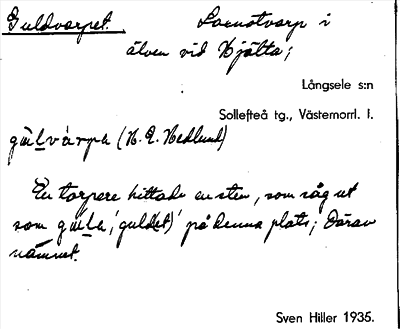 Guldvarpet. Laxnotvarp i
älven vid Hjälta;
Långsele s:n
Sollefteå tg., Västernorrl. l.
gu̇lvárpa (N. E. Hedlund)
En torpare hittade en sten, som såg ut
som gula, 'guld(et)' på denna plats; Därav
namnet.
Sven Hiller 1935.